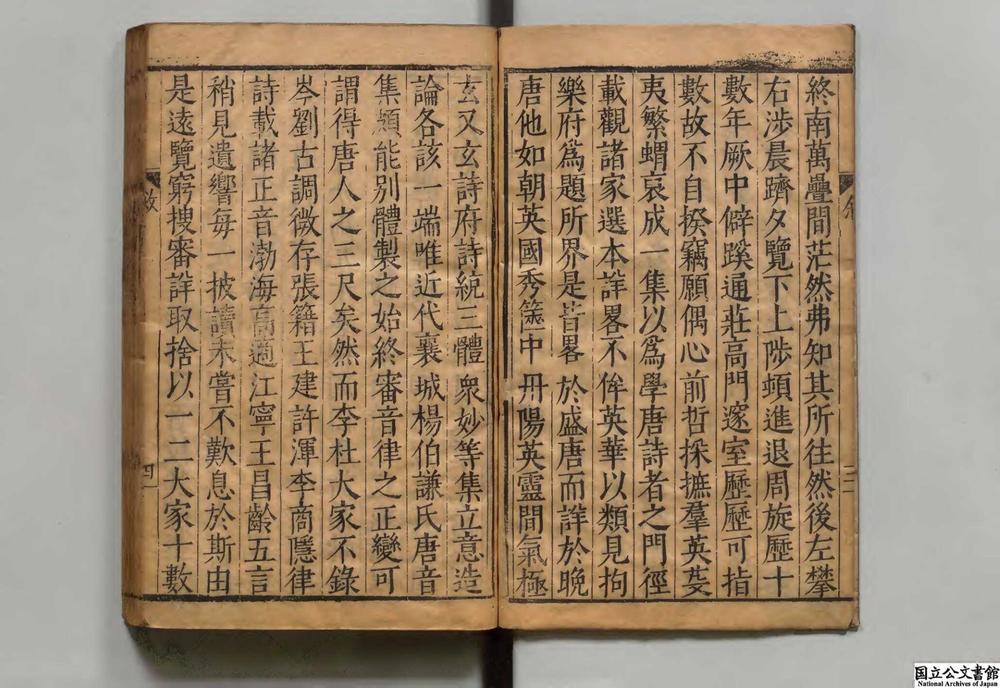 終南萬疊間茫然弗知其所往然後左攀
右涉晨躋夕覽下上陟頓進退周旋歷十
數年厥中僻蹊通莊高門邃室歷歷可指
數故不自揆竊願偶心前哲採摭羣英芟
夷繁蝟裒成一集以爲學唐詩者之門徑
載觀諸家選本詳畧不侔英華以類見拘
樂府爲題所界是皆畧於盛唐而詳於晚
唐他如朝英國秀篋中丹陽英靈間氣極
玄又玄詩府詩統三體衆妙等集立意造
論各該一端唯近代襄城楊伯謙氏唐音
集類能別體製之始終審音律之正變可
謂得唐人之三尺矣然而李杜大家不錄
岑劉古調微存張籍王建許渾李商隱律
詩載諸正音渤海高適江寧王昌齡五言
稍見遺響每一披讀未嘗不歎息於斯由
是遠覽窮搜審詳取捨以一二大家十數
四
国立公文書館
National Archives of Japan